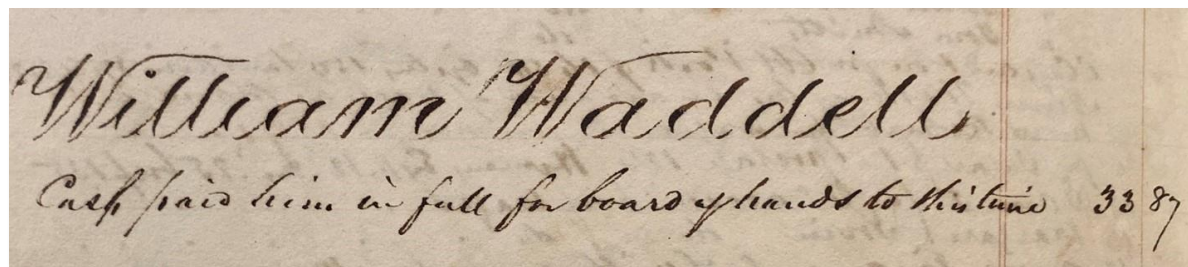 William Waddell
Cash paid him in full for board of hands to this time 33 87